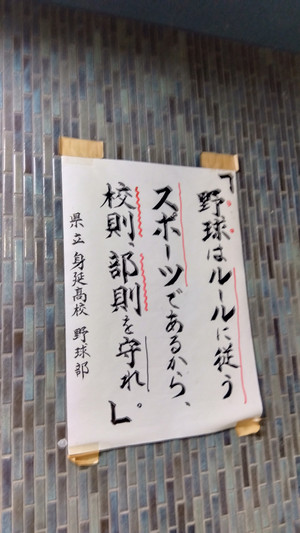 「野球はルールに従う
スポーツであるから、
校則、部則を守れ」。
県立 身延高校 野球部